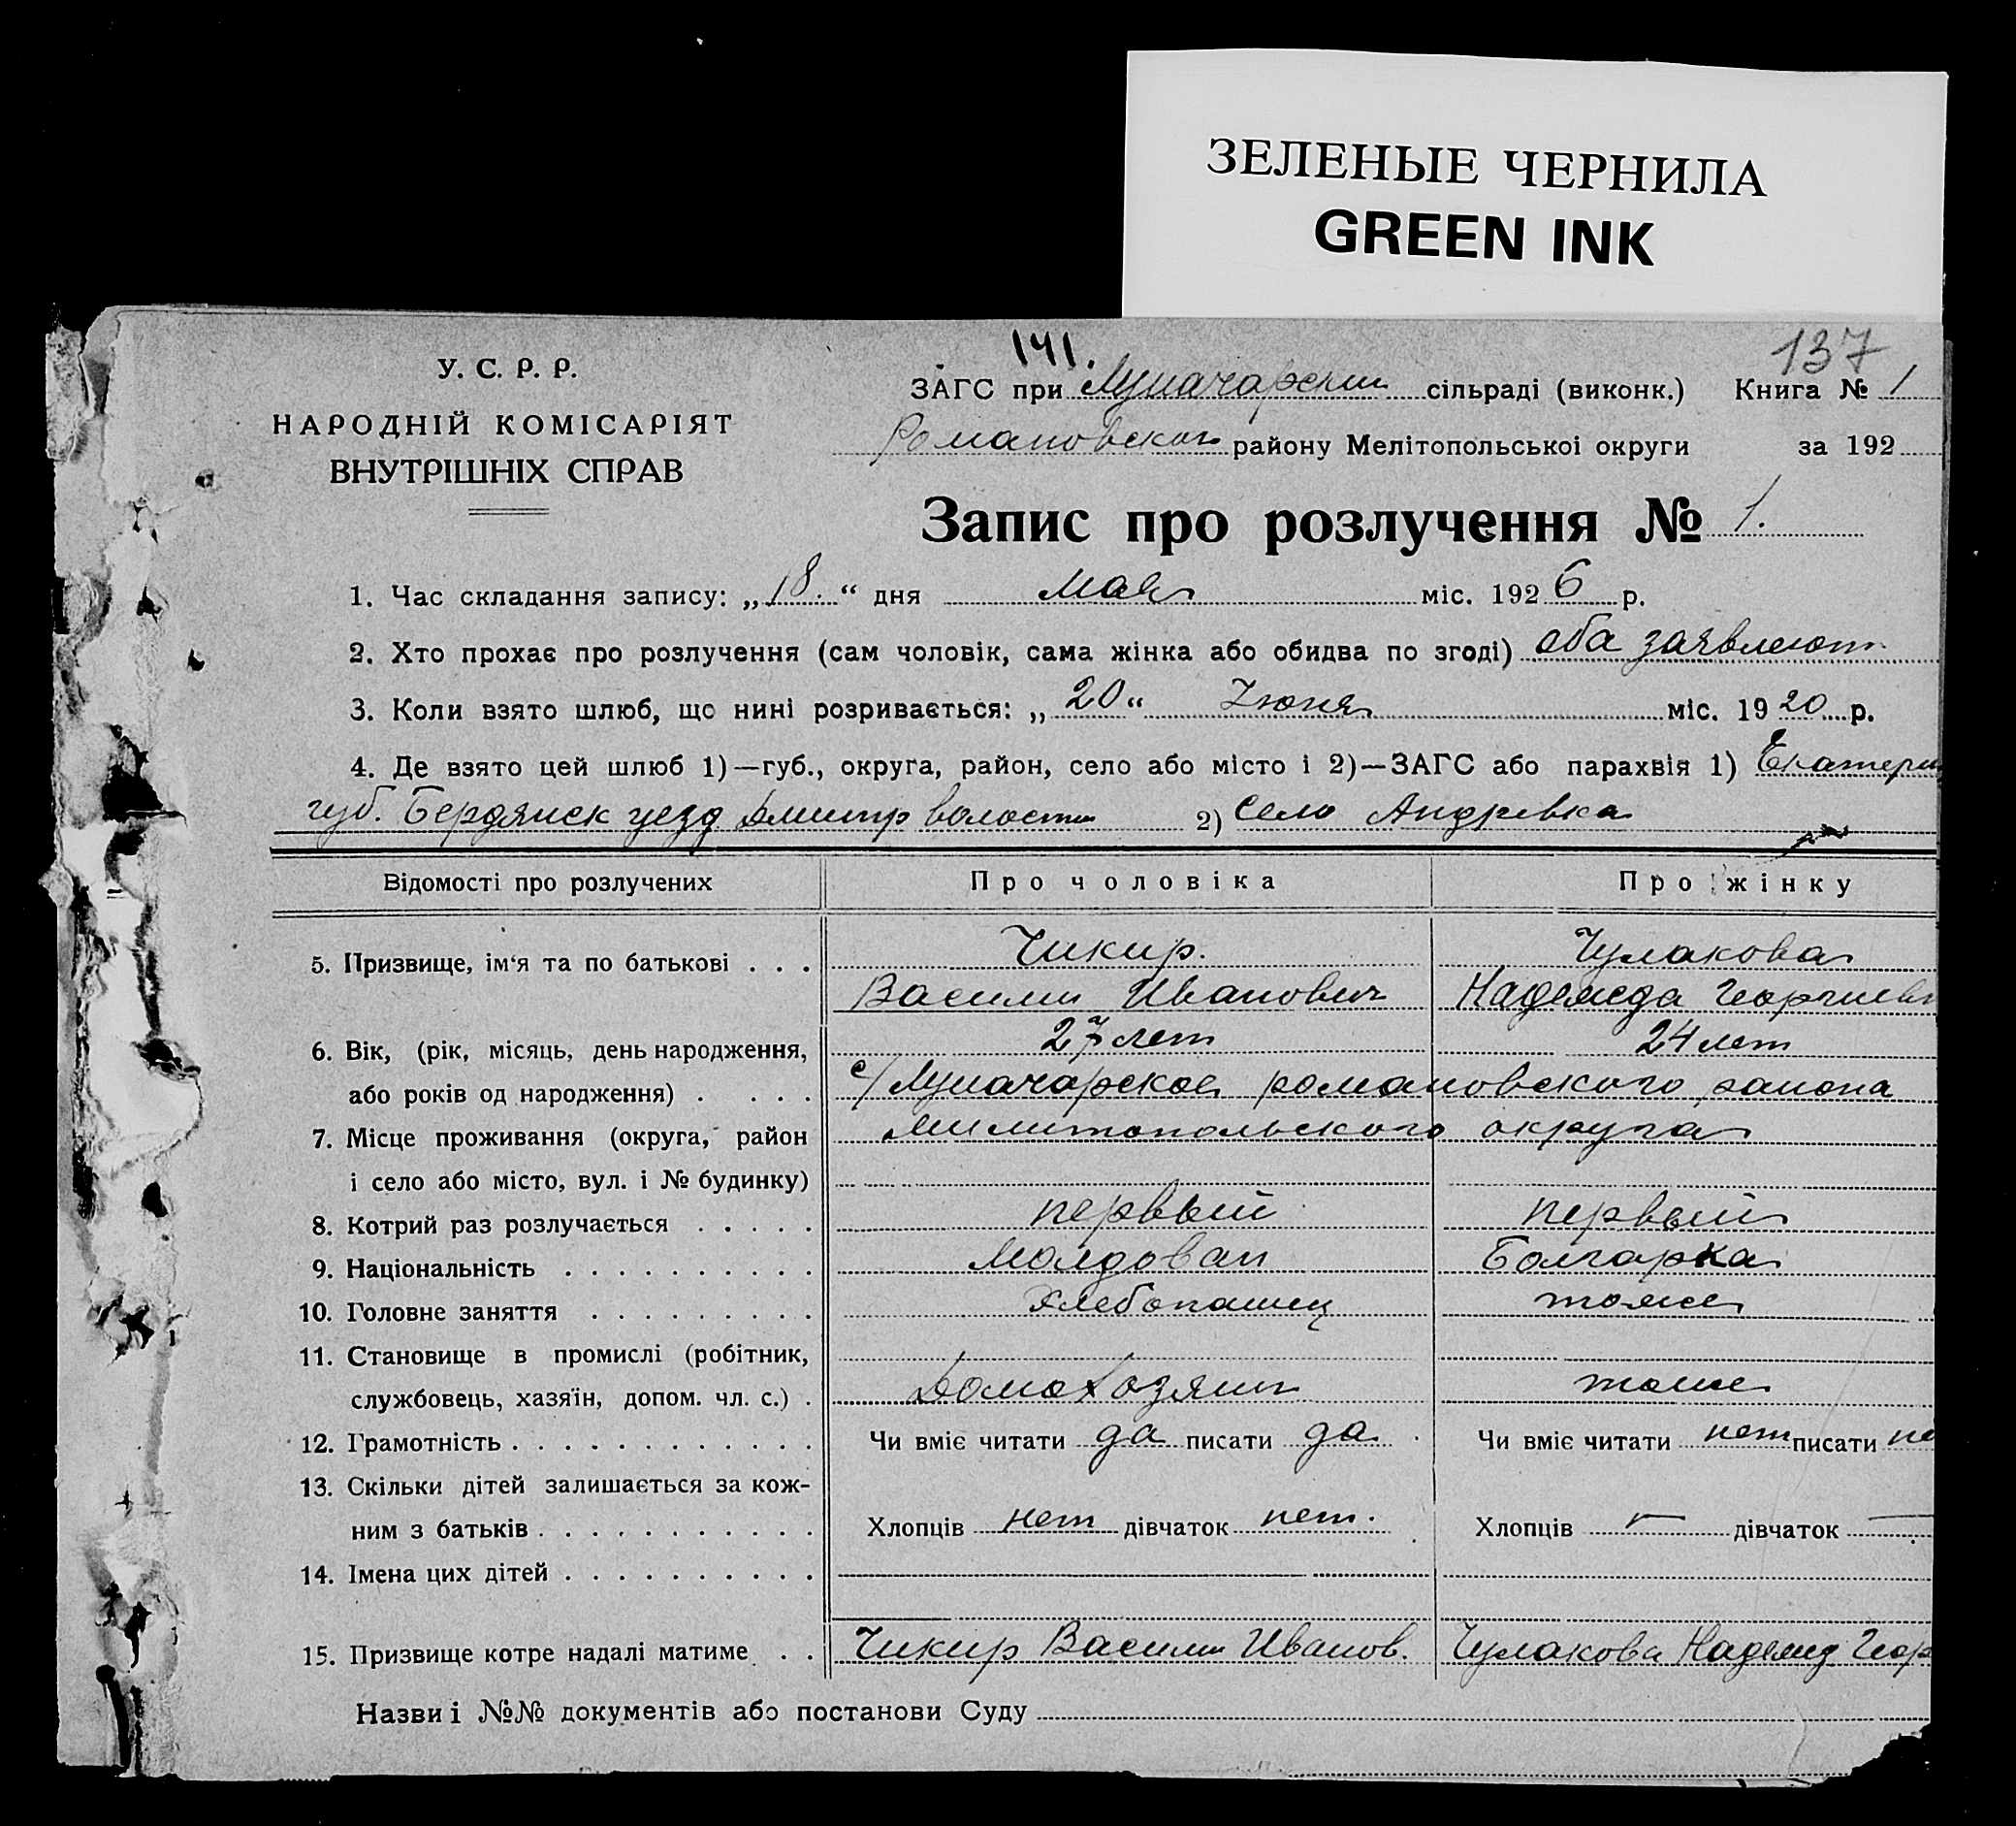 ЗЕЛЕНЫЕ ЧЕРНИЛА
GREEN INK
141.
137
У. С. Р. Р.
НАРОДНІЙ КОМІСАРІЯТ
ВНУТРІШНІХ СПРАВ
ЗАГС при Луначарским сільраді (виконк.) Книга № 1
Романовского району Мелітопольської округи за 192
Запис про розлучення № 1.
1. Час складання запису: „18.“ дня Мая міс. 1926 р.
2. Хто прохає про розлучення (сам чоловік, сама жінка або обидва по згоді) оба заявлеют
3. Коли взято шлюб, що нині розривається: „20“ Июня міс. 1920 р.
4. Де взято цей шлюб 1)—губ., округа, район, село або місто і 2)—ЗАГС або парахвія 1) Екатерин
губ. Бердянск уезд Дмитр волости 2) Село Андревка
Відомості про розлучених Про чоловіка Про жінку
5. Призвище, ім‘я та по батькові . . . Чикир. Чулакова
Васили Иванович Надежда Георгиевн
6. Вік, (рік, місяць, день народження, 27 лет 24 лет
або років од народження) . . . . с/Луначарское романовского раиона
7. Місце проживання (округа, район Милитопольского округа
і село або місто, вул. і № будинку)
8. Котрий раз розлучається . . . . . первый первый
9. Національність . . . . . . . . . . Молдован Болгарка
10. Головне заняття . . . . . . . . . Хлебопашец тоже
11. Становище в промислі (робітник,
службовець, хазяїн, допом. чл. с.) . Домохозяин тоже
12. Грамотність . . . . . . . . . . . . Чи вміє читати да писати да Чи вміє читати нет писати не
13. Скільки дітей залишається за кож-
ним з батьків . . . . . . . . . . . Хлопців нет дівчаток нет. Хлопців — дівчаток —
14. Імена цих дітей . . . . . . . . . .
15. Призвище котре надалі матиме . . Чикир Васили Иванов. Чулакова Надежд Геор
Назви і №№ документів або постанови Суду